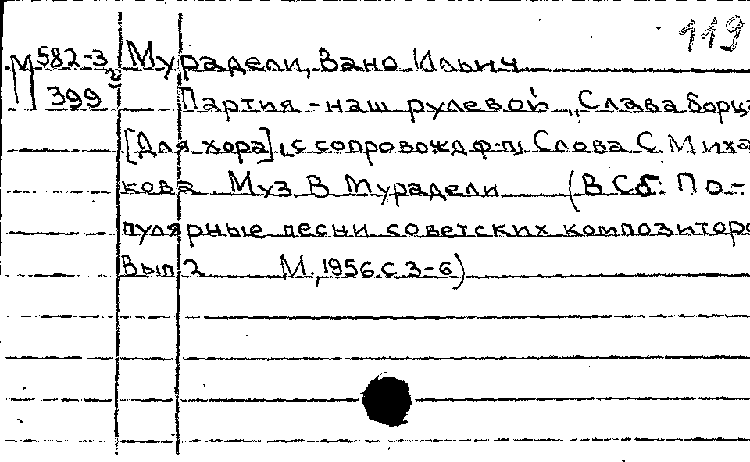 119
М 582-3 Мурадели, Вано Ильич
399 2 Партия - наш рулевой „Слава борца
[Для хора], с сопровожд ф-п, Слова С. Миха
кова. Муз В Мурадели (В Сб. По-
пулярные песни советских композиторо
Вып 2 М., 1956. С 3-6)